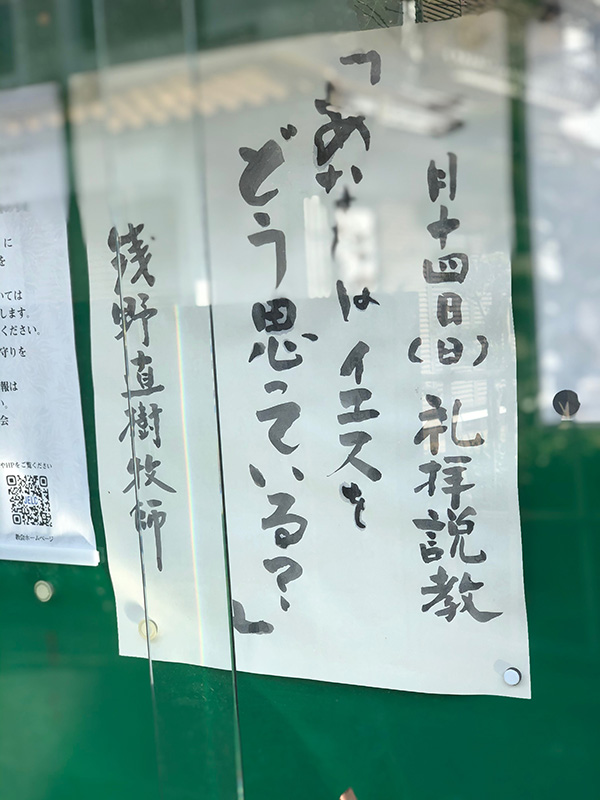 月十四日(日) 礼拝説教
「あなたはイエスを
どう思っている?」
浅野直樹牧師
に
を
いては
します。
ください。
守りを
報は
い。
会
やHPをご覧ください
JELC
教会ホームページ